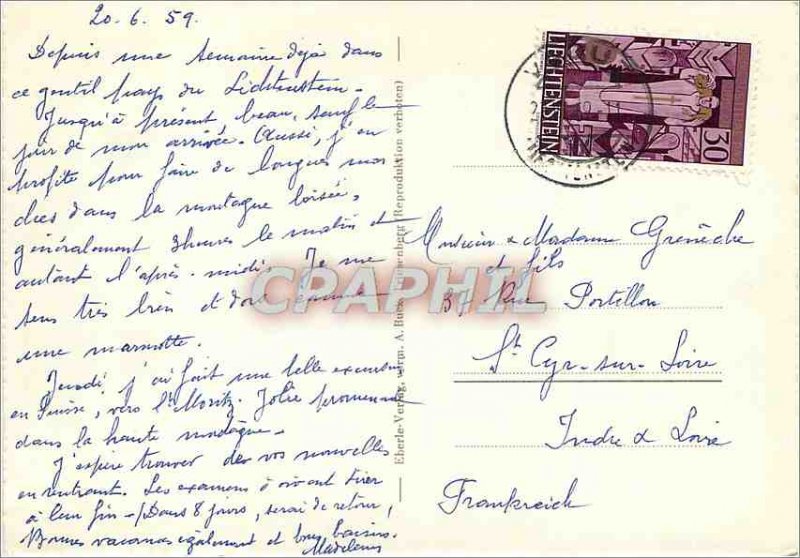 20.6.59.
Depuis une semaine déjà dans
ce gentil pays du Lichtenstein.
Jusqu'à présent beau, sauf le
jour de mon arrivée. Aussi, j'en
profite pour faire de longues mar
ches dans la montagne boisée,
généralement 3 heures le matin et
autant l'après-midi. Je me
sens très bien et dors comme
une marmotte.
Jeudi j'ai fait une belle excursion
en Suisse, vers St Moritz. Jolie promenade
dans la haute montagne.
J'espère trouver de vos nouvelles
en rentrant. Les examens doivent tirer
à leur fin - Dans 8 jours, serai de retour,
Bonnes vacances également et bons baisers.
Eberle-Verlag, verm. A. Buck (Reproduktion verboten)
LIECHTENSTEIN
30
Monsieur & Madame Grenêche
et fils
37 Rue Portillon
St Cyr-sur-Loire
Indre & Loire
Frankreich
CPAPHIL